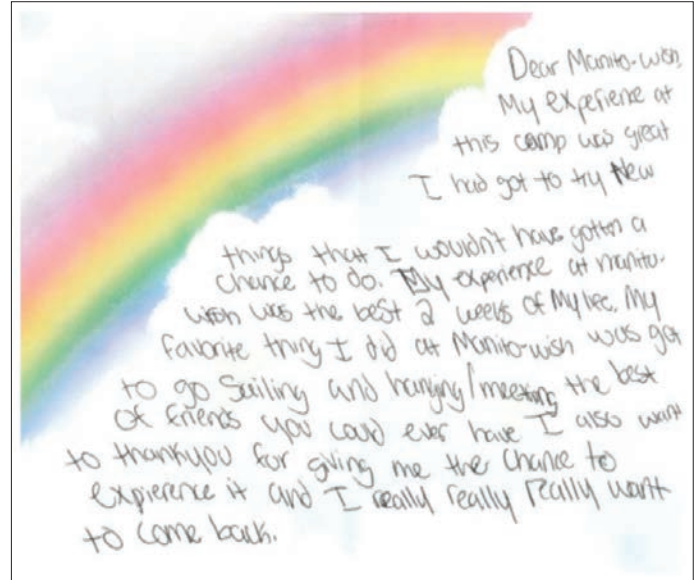 Dear Manito-wish,
My experiene at
this camp was great
I had got to try New
things that I wouldn't have gotton a
chance to do. My experience at manito-
wish was the best 2 weeks of My life. My
favorite thing I did at Manito-wish was got
to go Sailing and hanging/meeting the best
of friends you could ever have I also want
to thankyou for giving me the chance to
expierence it and I really really really want
to come back.